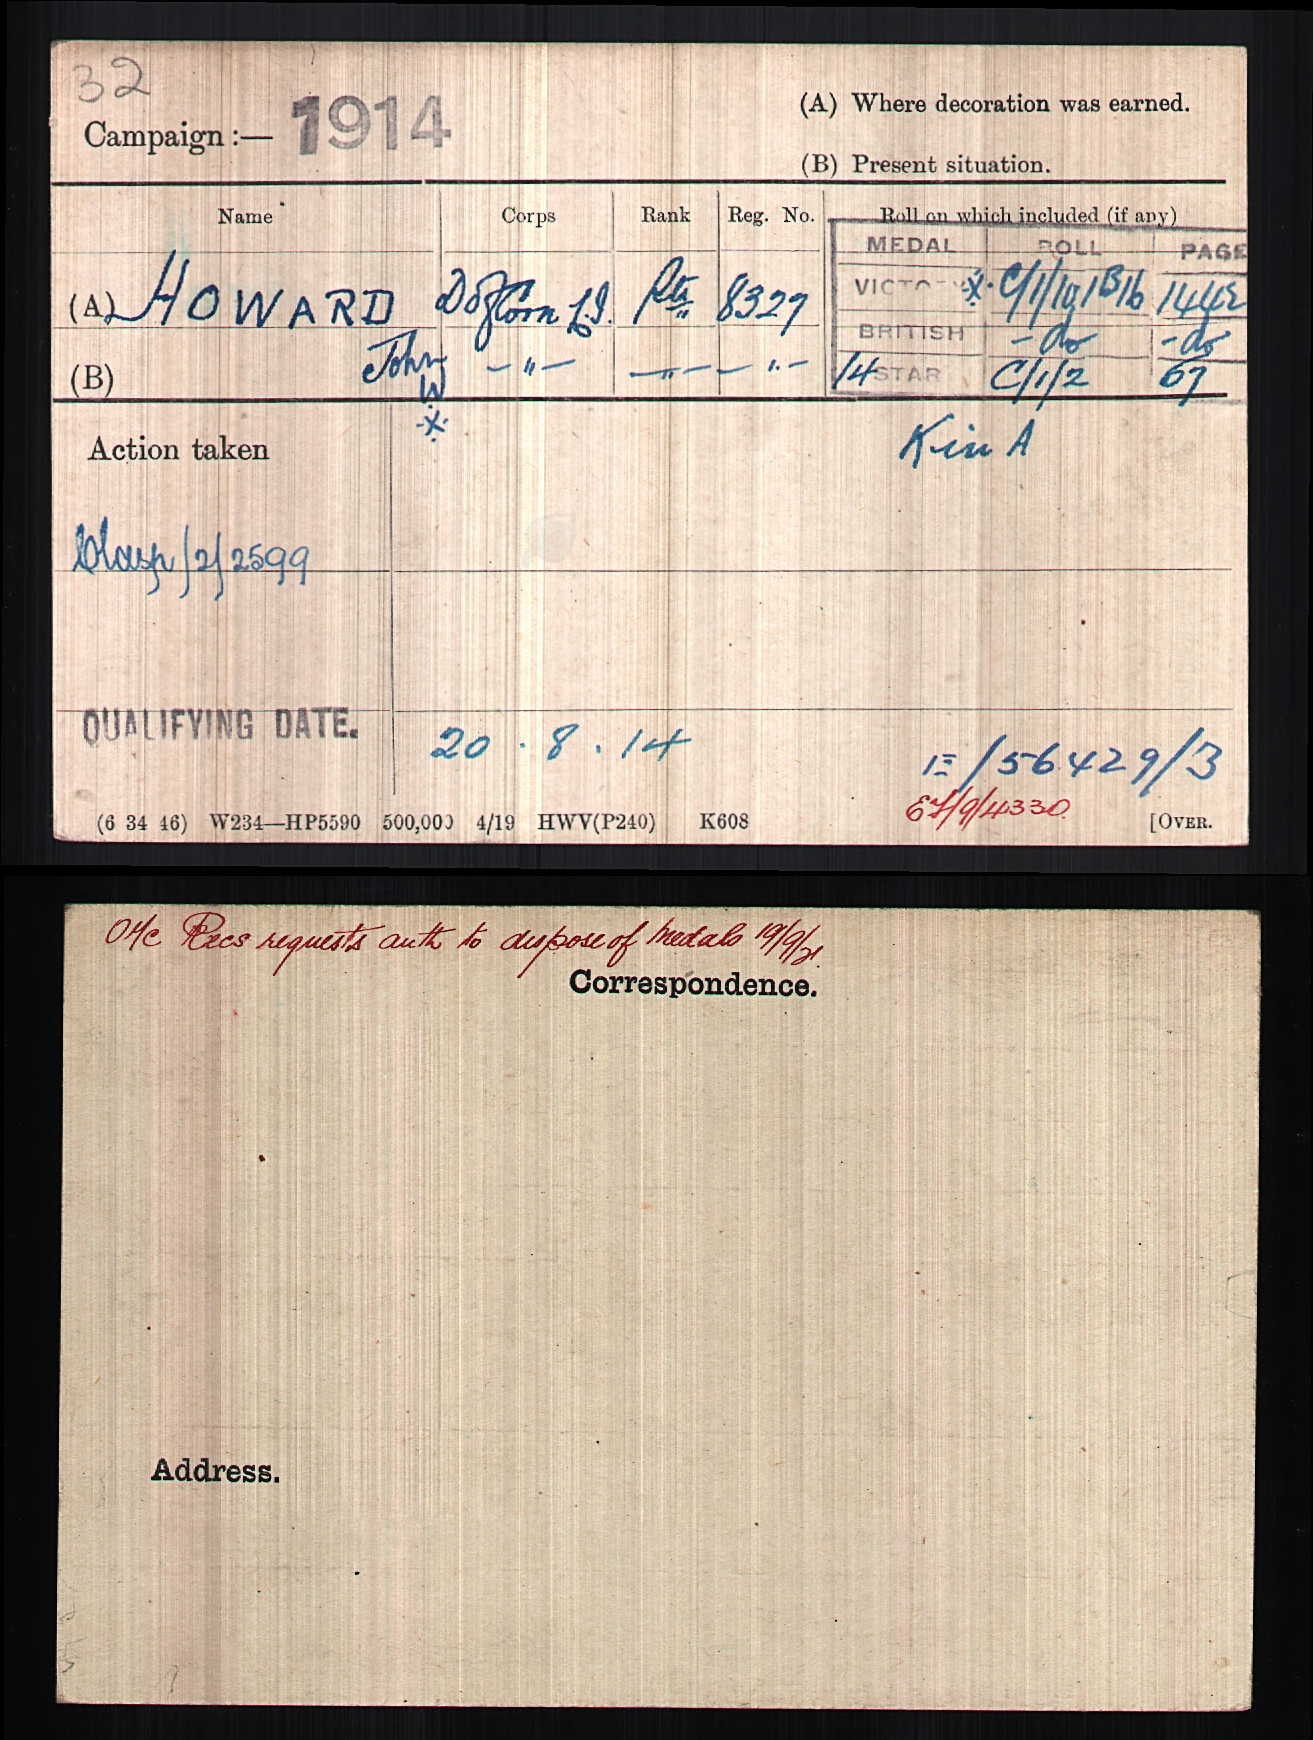 32
Campaign :— 1914
(A) Where decoration was earned.
(B) Present situation.
Name Corps Rank Reg. No. Roll on which included (if any)
MEDAL ROLL PAGE
(A) HOWARD D of Corn L.I. Pte 8327 VICTORY * C/1/101B16 1442
BRITISH -do -do
(B) John W * —"— —"— —"— 14 STAR C/1/2 67
Action taken
Kin A
Clasp/2/2599
QUALIFYING DATE. 20.8.14
E/56429/3
(6 34 46) W234—HP5590 500,000 4/19 HWV(P240) K608
[OVER.
O i/c Recs requests auth to dispose of medals 19/9/21.
Correspondence.
Address.